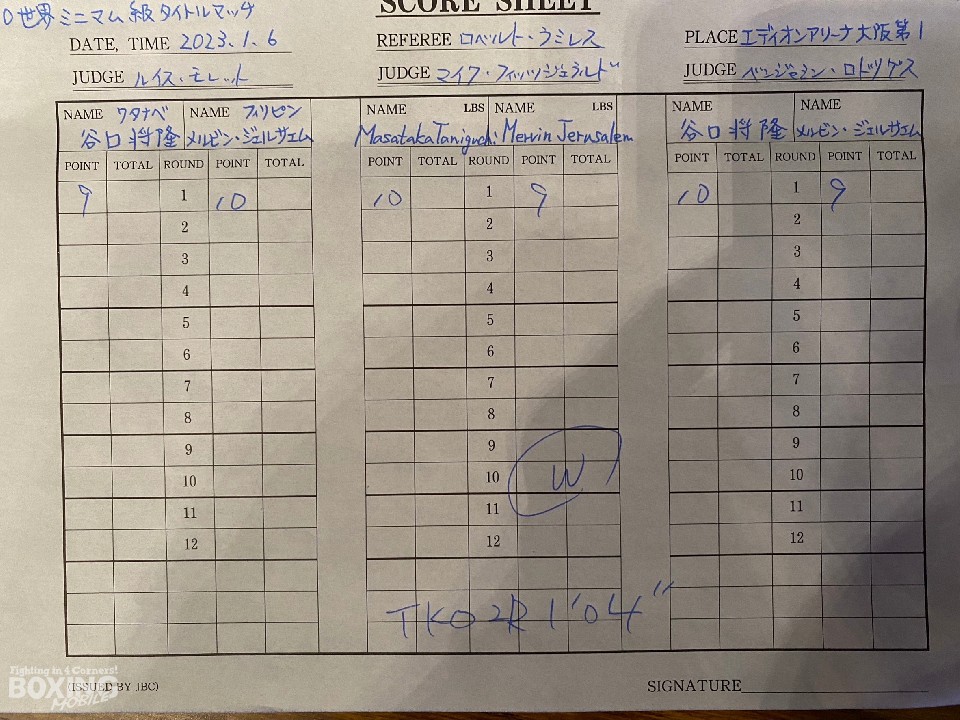 O世界ミニマム級タイトルマッチ
SCORE SHEET
DATE, TIME 2023.1.6 REFEREE ロベルト・ラミレス PLACE エディオンアリーナ大阪第1
JUDGE ルイス・モレット JUDGE マイク・フィッツジェラルド JUDGE ベンジャミン・ロドリゲス
NAME ワタナベ NAME フィリピン NAME LBS NAME LBS NAME NAME
谷口将隆 メルビン・ジェルサエム Masataka Taniguchi Mervin Jerusalem 谷口将隆 メルビン・ジェルサエム
POINT TOTAL ROUND POINT TOTAL POINT TOTAL ROUND POINT TOTAL POINT TOTAL ROUND POINT TOTAL
9 1 10 10 1 9 10 1 9
2 2 2
3 3 3
4 4 4
5 5 5
6 6 6
7 7 7
8 8 8
9 9 9
10 10 W 10
11 11 11
12 12 12
TKO 2R 1'04"
Fighting in 4 Corners!
BOXING
MOBILE
(ISSUED BY JBC) SIGNATURE